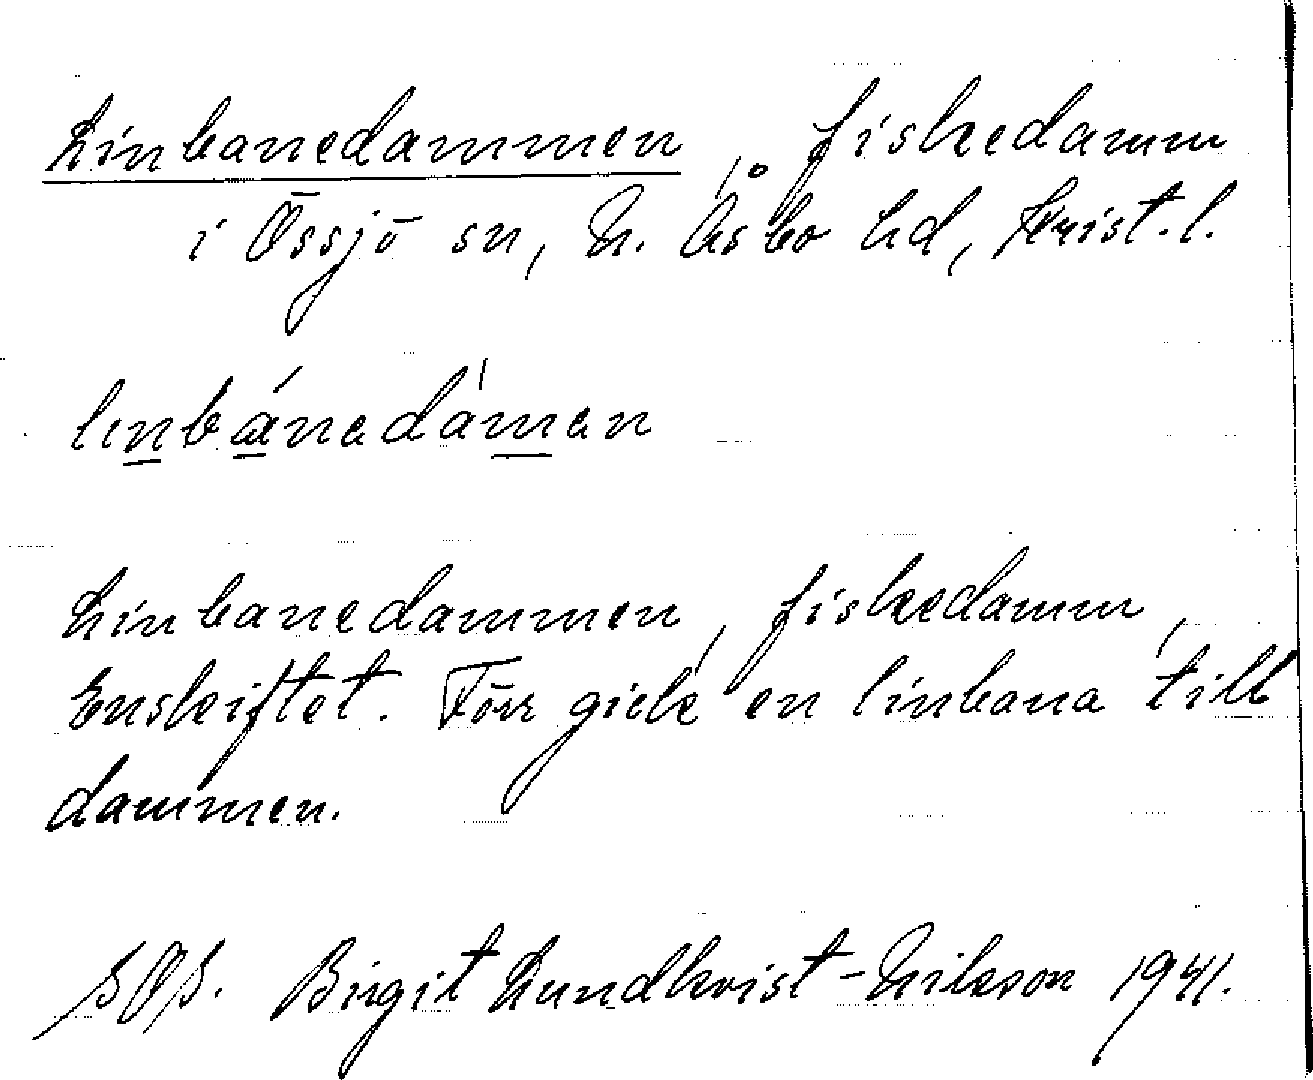 Linbanedammen, fiskedamm
i Össjö sn, N. Åsbo hd, Krist. l.
linbánadámen
Linbanedammen, fiskedamm,
Enskiftet. Förr gick en linbana till
dammen.
SOS. Birgit Lundkvist-Nilsson 1941.